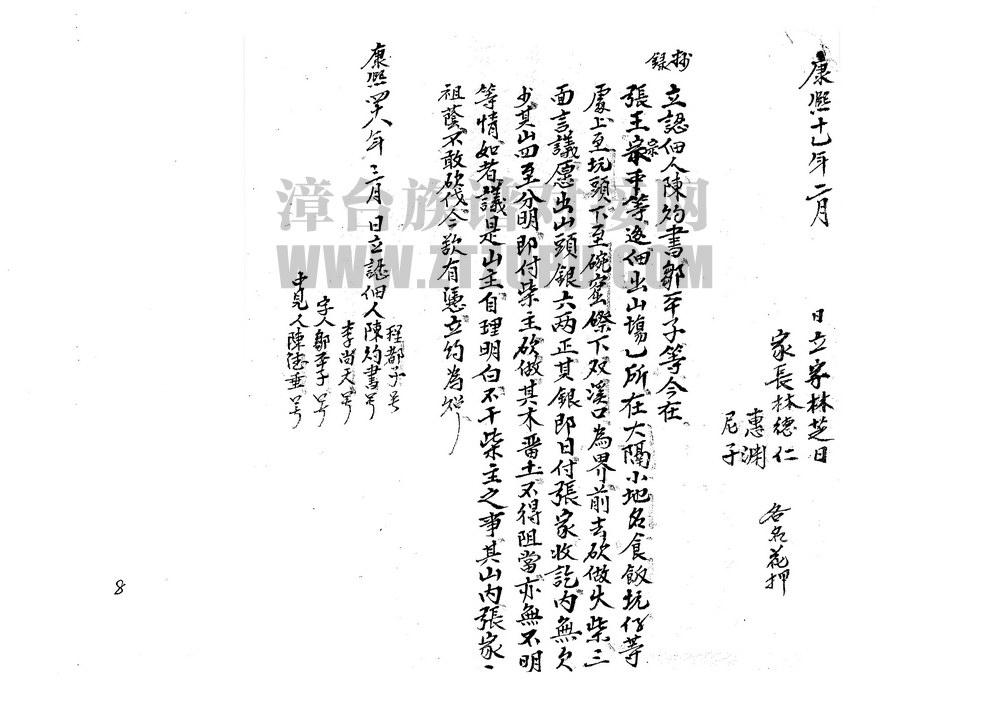 康熙十七年二月
日立字林芝日
家長林德仁
惠渊
尼子
各名花押
抄録
立認佃人陳灼書鄒平子等今在
張王宗宗平等邊佃出山塲乙所在大隔小地名食飯坑仔等
處上至坑頭下至碗窑磜下双溪口為界前去砍做火柴三
面言議愿出山頭銀六两正其銀即日付張家收訖内無欠
少其山四至分明即付柴主砍做其木番土不得阻當亦無不明
等情如者議是山主自理明白不干柴主之事其山内張家一
祖蔭不敢砍伐今欲有憑立約為炤
康熙四八年三月 日立認佃人陳灼書号
程都子号
李尚天号
字人鄒平子号
中見人陳德垂号
8
漳台族谱对接网
WWW.ZTZUPU.COM